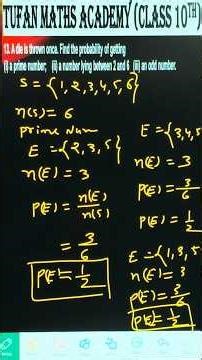 TUFAN MATHS ACADEMY (CLASS 10TH)
13. A die is thrown once. Find the probability of getting
(i) a prime number; (ii) a number lying between 2 and 6 (iii) an odd number.
S = {1, 2, 3, 4, 5, 6}
n(S) = 6
Prime Num
E = {2, 3, 5}
n(E) = 3
P(E) = n(E)/n(S)
= 3/6
P(E) = 1/2
E = {3, 4, 5
n(E) = 3
P(E) = 3/6
P(E) = 1/2
E = {1, 3, 5
n(E) = 3
P(E) = 3/6
P(E) = 1/2